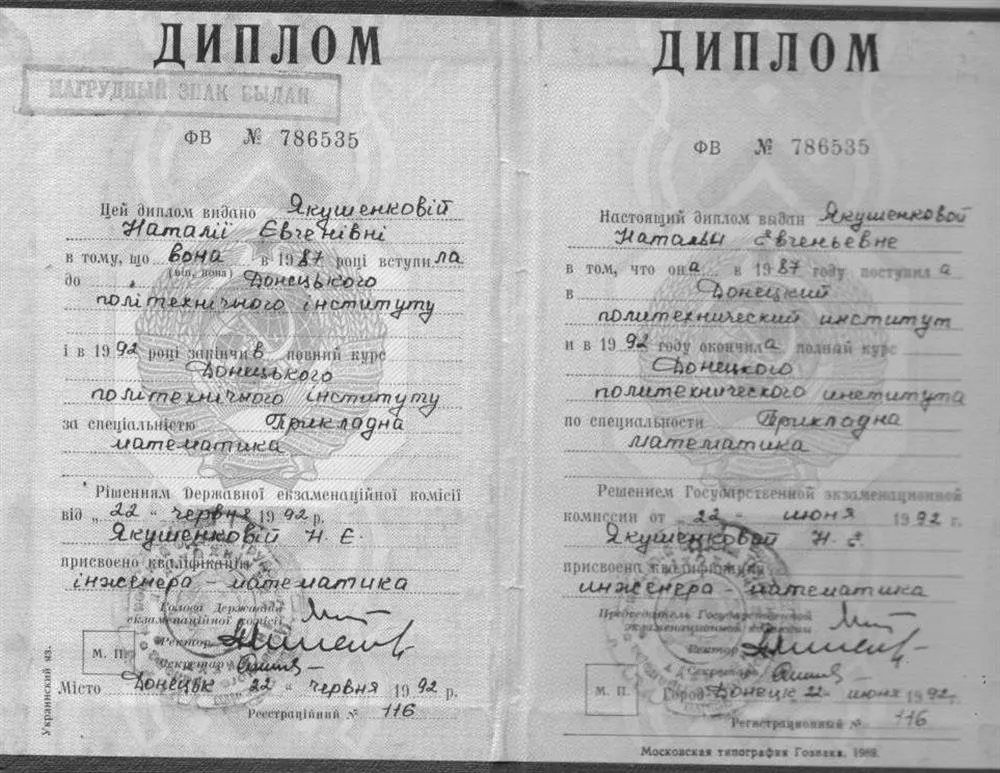 ДИПЛОМ
НАГРУДНЫЙ ЗНАК ВЫДАН
ФВ № 786535
Цей диплом видано Якушенковій
Наталії Євгенівні
в тому, що вона в 1987 році вступила
(він, вона)
до Донецького
політехнічного інституту
і в 1992 році закінчив повний курс
Донецького
політехнічного інституту
за спеціальністю Прикладна
математика
Рішенням Державної екзаменаційної комісії
від „ 22 “ червня 1992 р.
Якушенковій Н. Є.
присвоєно кваліфікацію
інженера – математика
Голова Державної
екзаменаційної комісії
Ректор
Секретар
М. П.
Місто Донецьк 22 “ червня 1992 р.
Реєстраційний № 116
Украинский яз.
ДИПЛОМ
ФВ № 786535
Настоящий диплом выдан Якушенковой
Наталье Евгеньевне
в том, что она в 1987 году поступила
в Донецкий
политехнический институт
и в 1992 году окончила полный курс
Донецкого
политехнического института
по специальности Прикладна
математика
Решением Государственной экзаменационной
комиссии от „ 22 “ июня 1992 г.
Якушенковой Н. Е.
присвоена квалификация
инженера – математика
Председатель Государственной
экзаменационной комиссии
Ректор
Секретарь
М. П.
Город Донецк 22 “ июня 1992 г.
Регистрационный № 116
Московская типография Гознака. 1989.